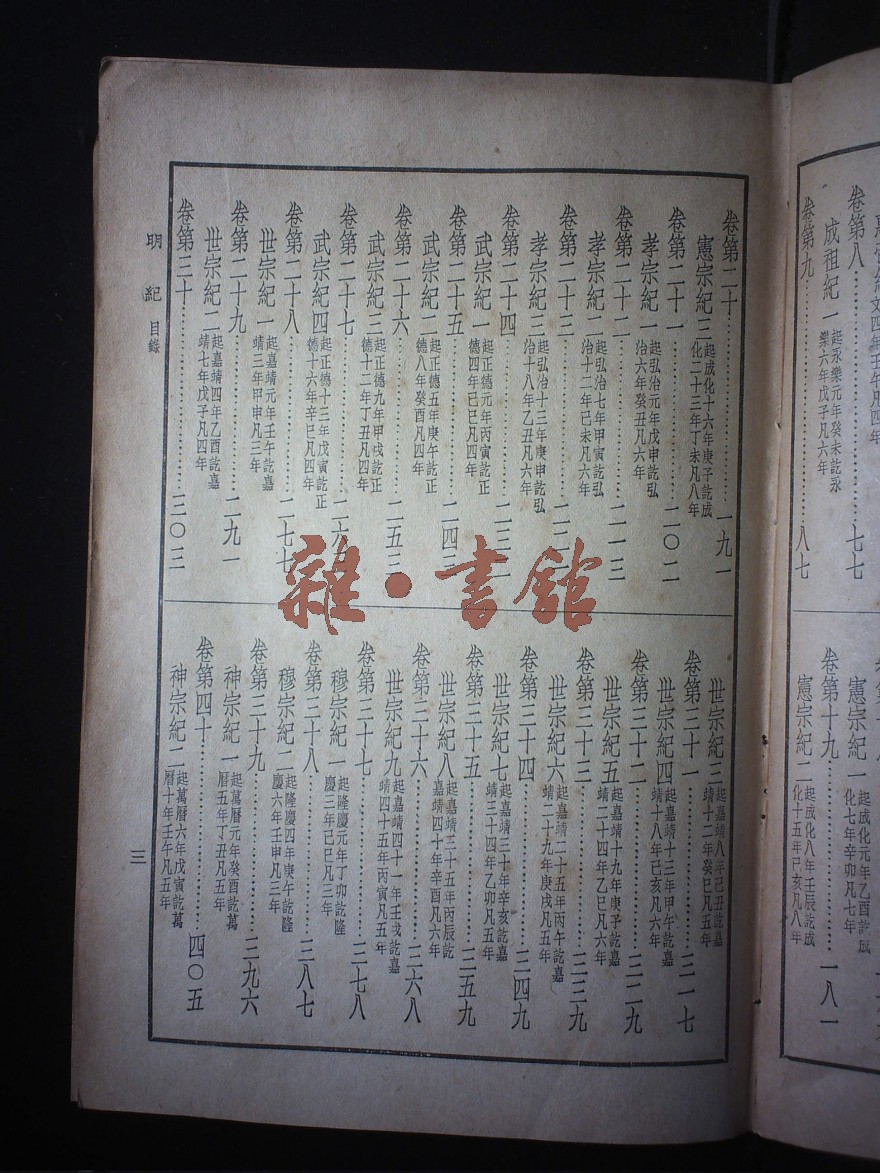 卷第八……七七
成祖紀一起永樂元年癸未訖永樂六年戊子凡六年
卷第九……八七
憲宗紀一起成化元年乙酉訖成化七年辛卯凡七年
卷第十九……一八一
憲宗紀二起成化八年壬辰訖成化十五年己亥凡八年
卷第二十……一九一
憲宗紀三起成化十六年庚子訖成化二十三年丁未凡八年
卷第二十一……二〇二
孝宗紀一起弘治元年戊申訖弘治六年癸丑凡六年
卷第二十二……二一三
孝宗紀二起弘治七年甲寅訖弘治十二年己未凡六年
卷第二十三……二二
孝宗紀三起弘治十三年庚申訖弘治十八年乙丑凡六年
卷第二十四……二三
武宗紀一起正德元年丙寅訖正德四年己巳凡四年
卷第二十五……二四
武宗紀二起正德五年庚午訖正德八年癸酉凡四年
卷第二十六……二五三
武宗紀三起正德九年甲戌訖正德十二年丁丑凡四年
卷第二十七……二六
武宗紀四起正德十三年戊寅訖正德十六年辛巳凡四年
卷第二十八……二七七
世宗紀一起嘉靖元年壬午訖嘉靖三年甲申凡三年
卷第二十九……二九一
世宗紀二起嘉靖四年乙酉訖嘉靖七年戊子凡四年
卷第三十……三〇三
世宗紀三起嘉靖八年己丑訖嘉靖十二年癸巳凡五年
卷第三十一……三一七
世宗紀四起嘉靖十三年甲午訖嘉靖十八年己亥凡六年
卷第三十二……三二九
世宗紀五起嘉靖十九年庚子訖嘉靖二十四年乙巳凡六年
卷第三十三……三三九
世宗紀六起嘉靖二十五年丙午訖嘉靖二十九年庚戌凡五年
卷第三十四……三四九
世宗紀七起嘉靖三十年辛亥訖嘉靖三十四年乙卯凡五年
卷第三十五……三五九
世宗紀八起嘉靖三十五年丙辰訖嘉靖四十年辛酉凡六年
卷第三十六……三六八
世宗紀九起嘉靖四十一年壬戌訖嘉靖四十五年丙寅凡五年
卷第三十七……三七八
穆宗紀一起隆慶元年丁卯訖隆慶三年己巳凡三年
卷第三十八……三八七
穆宗紀二起隆慶四年庚午訖隆慶六年壬申凡三年
卷第三十九……三九六
神宗紀一起萬曆元年癸酉訖萬曆五年丁丑凡五年
卷第四十……四〇五
神宗紀二起萬曆六年戊寅訖萬曆十年壬午凡五年
明紀 目錄
三
雜·書館